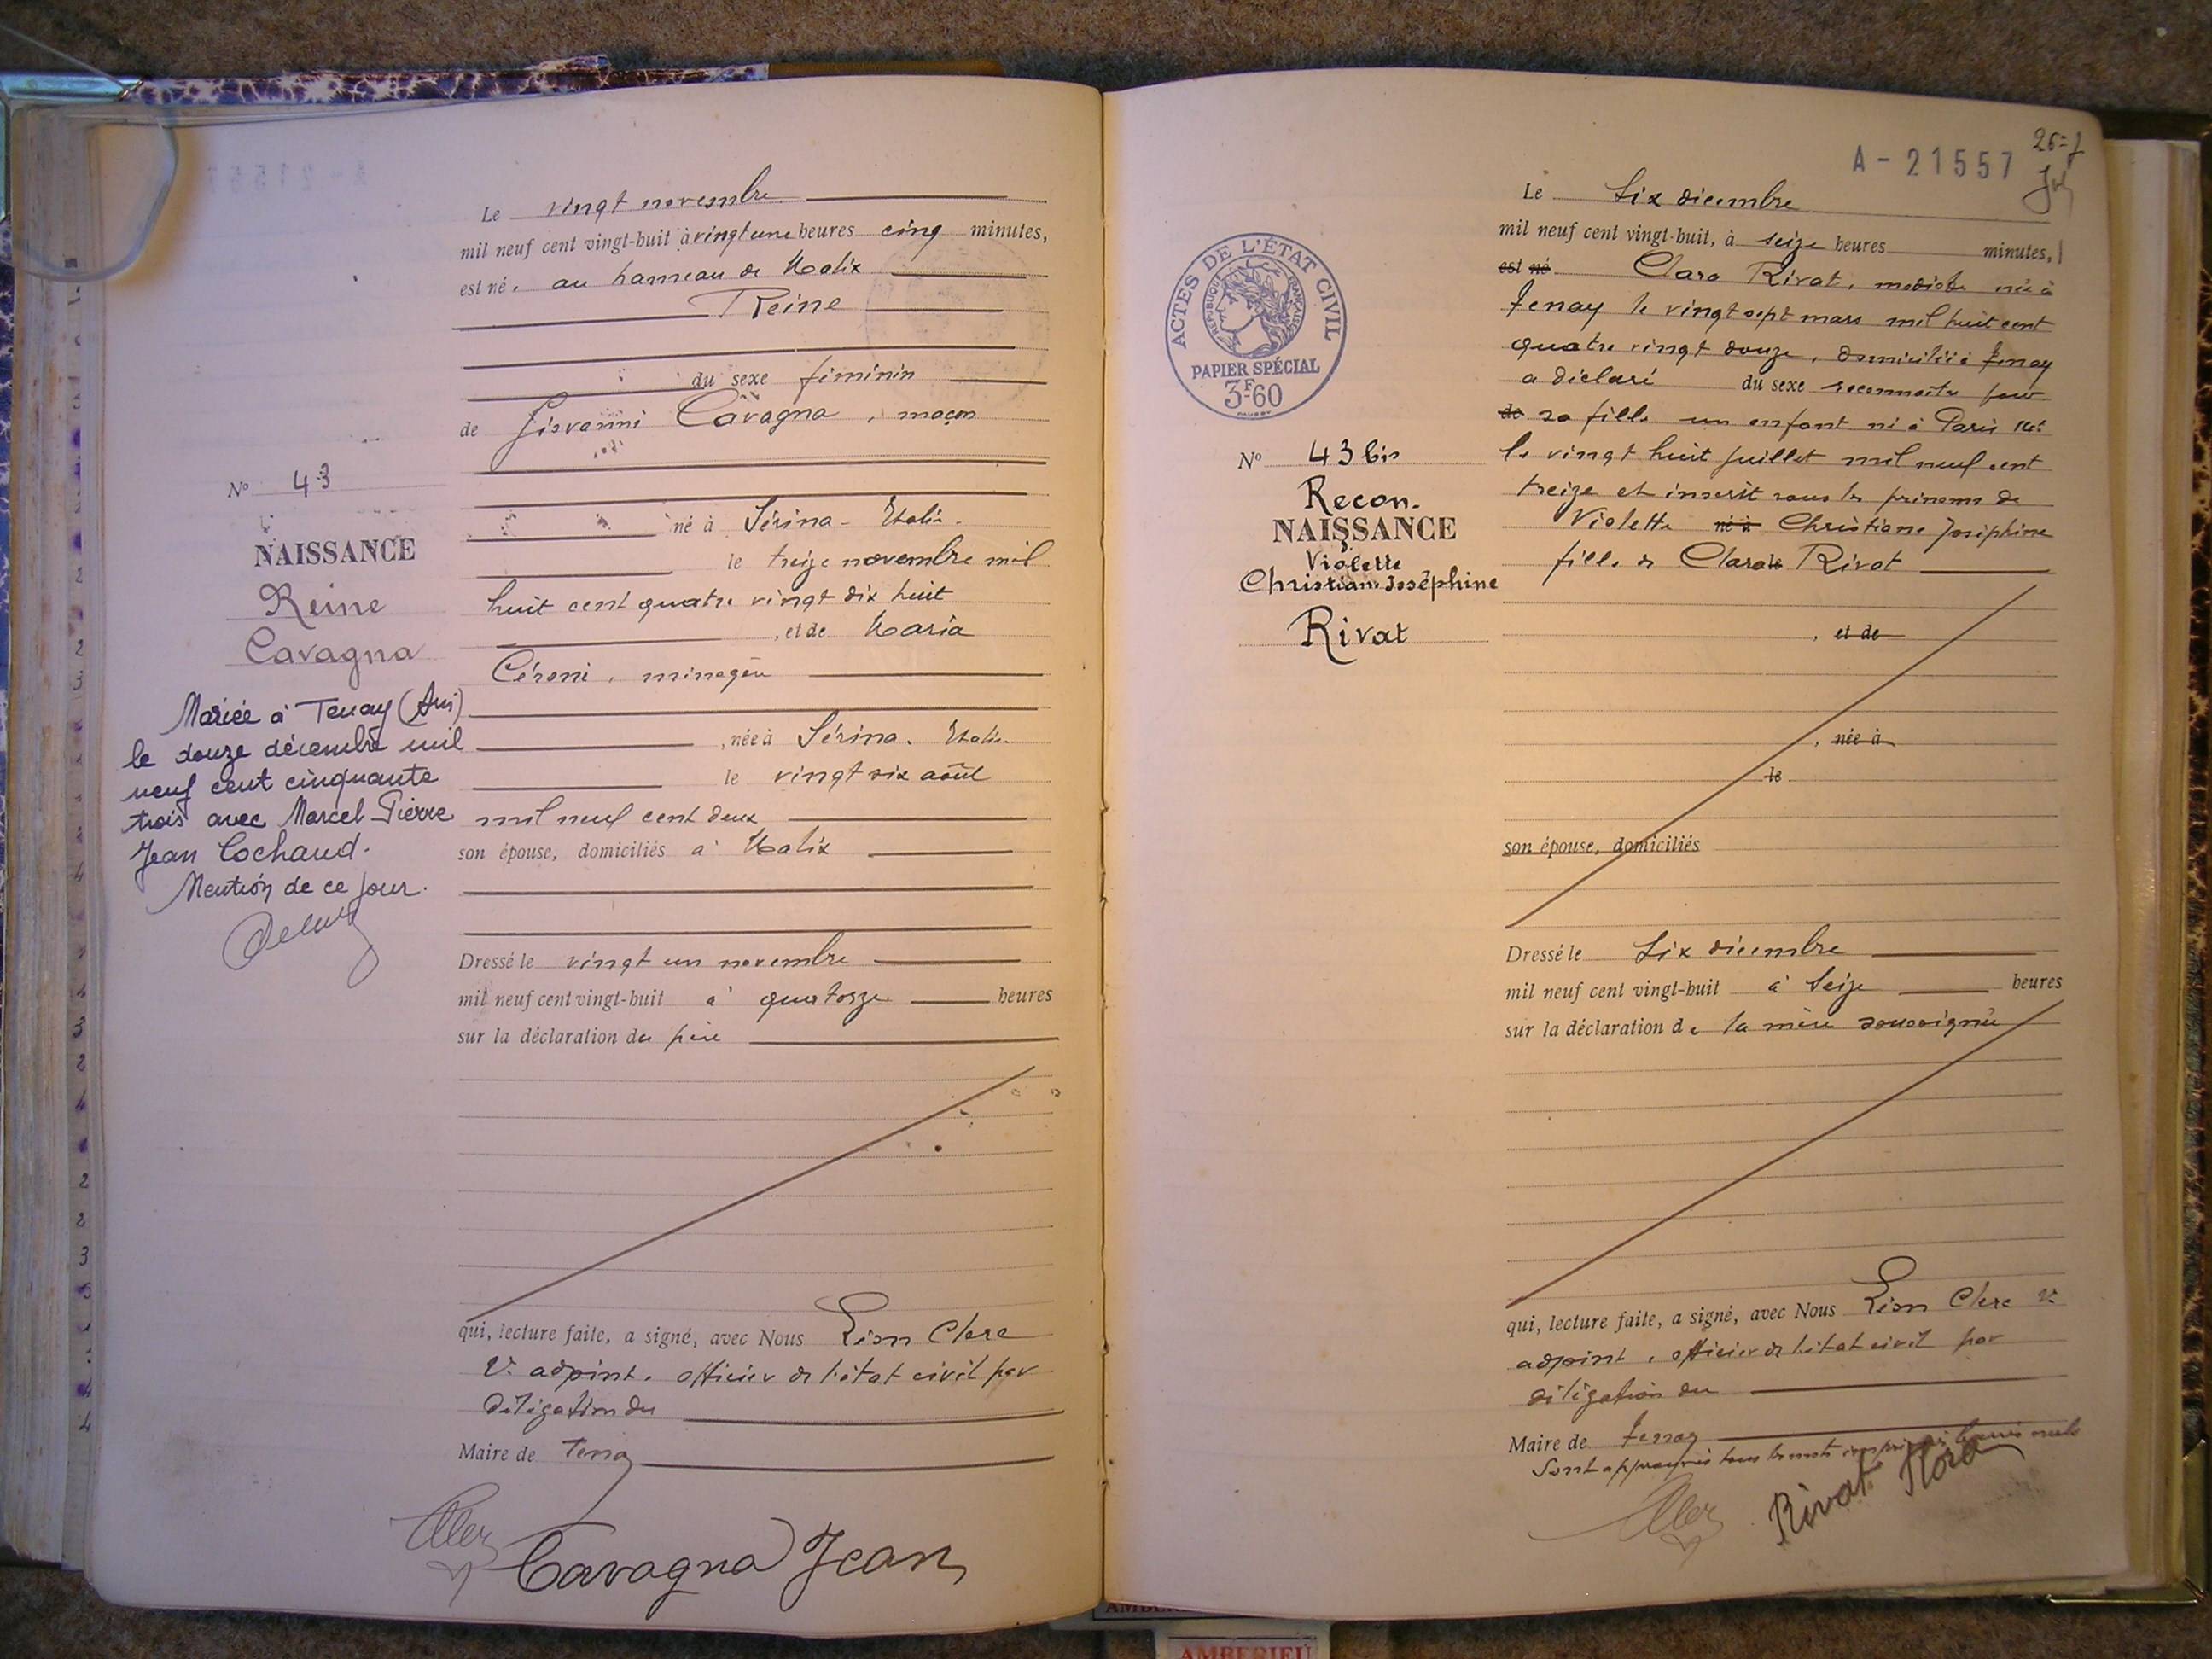 Le vingt novembre
mil neuf cent vingt-huit à vingt une heures cinq minutes,
est né, au hameau de Malix
Reine
du sexe féminin
de Giovanni Cavagna, maçon
né à Sérina - Italie.
le treize novembre mil
huit cent quatre vingt dix huit
, et de Maria
Céroni, ménagère
, née à Sérina. Italie
le vingt six août
mil neuf cent deux
son épouse, domiciliés à Malix
Dressé le vingt un novembre
mil neuf cent vingt-huit à quatorze heures
sur la déclaration du père
qui, lecture faite, a signé, avec Nous Léon Clerc
adjoint, officier de l'état civil par
délégation du
Maire de Tenay
Cavagna Jean
No 43
NAISSANCE
Reine
Cavagna
Mariée à Tenay (Ain)
le douze décembre mil
neuf cent cinquante
trois avec Marcel Pierre
Jean Cochaud.
Mention de ce jour.
A-21557
ACTES DE L'ÉTAT CIVIL
RÉPUBLIQUE FRANÇAISE
PAPIER SPÉCIAL
3F60
No 43 bis
Recon.
NAISSANCE
Violette
Christiane Joséphine
Rivat
Le six décembre
mil neuf cent vingt-huit, à seize heures minutes,
est né Clara Rivat, modiste née à
Tenay le vingt sept mars mil huit cent
quatre vingt douze, domiciliée à Tenay
a déclaré du sexe reconnaître pour
de sa fille un enfant né à Paris
le vingt huit juillet mil neuf cent
treize et inscrit sous les prénoms de
Violette né à Christiane Joséphine
fille de Clara le Rivat
, et de
, née à
le
son épouse, domiciliés
Dressé le six décembre
mil neuf cent vingt-huit à seize heures
sur la déclaration de la mère soussignée
qui, lecture faite, a signé, avec Nous Léon Clerc
adjoint, officier de l'état civil par
délégation du
Maire de Tenay
Sont approuvés tous les mots nuls
Rivat
AMBERIEU